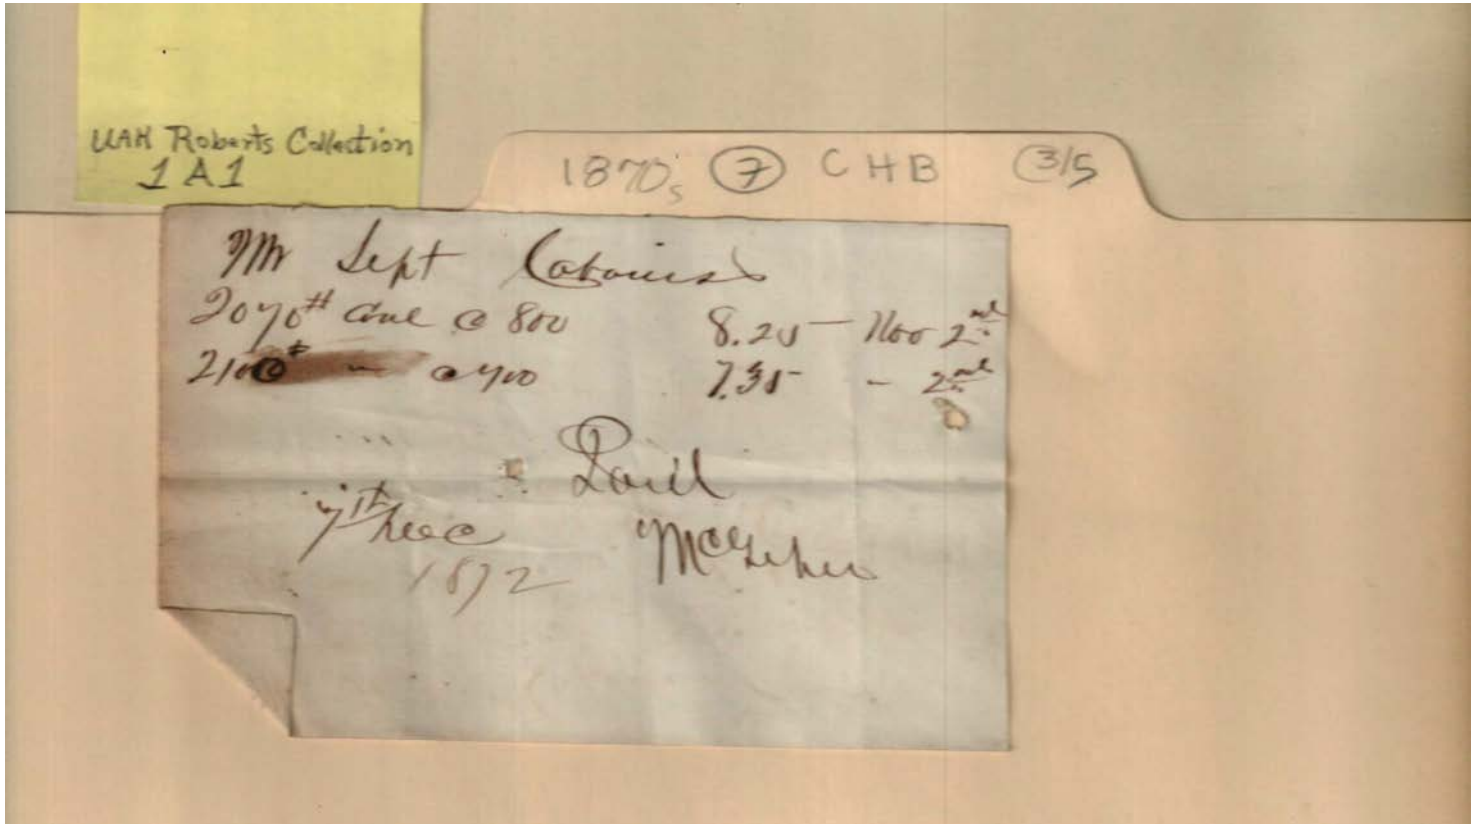 UAH Roberts Collection
1A1
1870s 7 CHB 3/5
Mr Sept Cabaniss
2070# Coal @ 800 8.25 — Nov 2nd
2100# " @ 700 7.35 - 2nd
Paid
7th Dec
1872